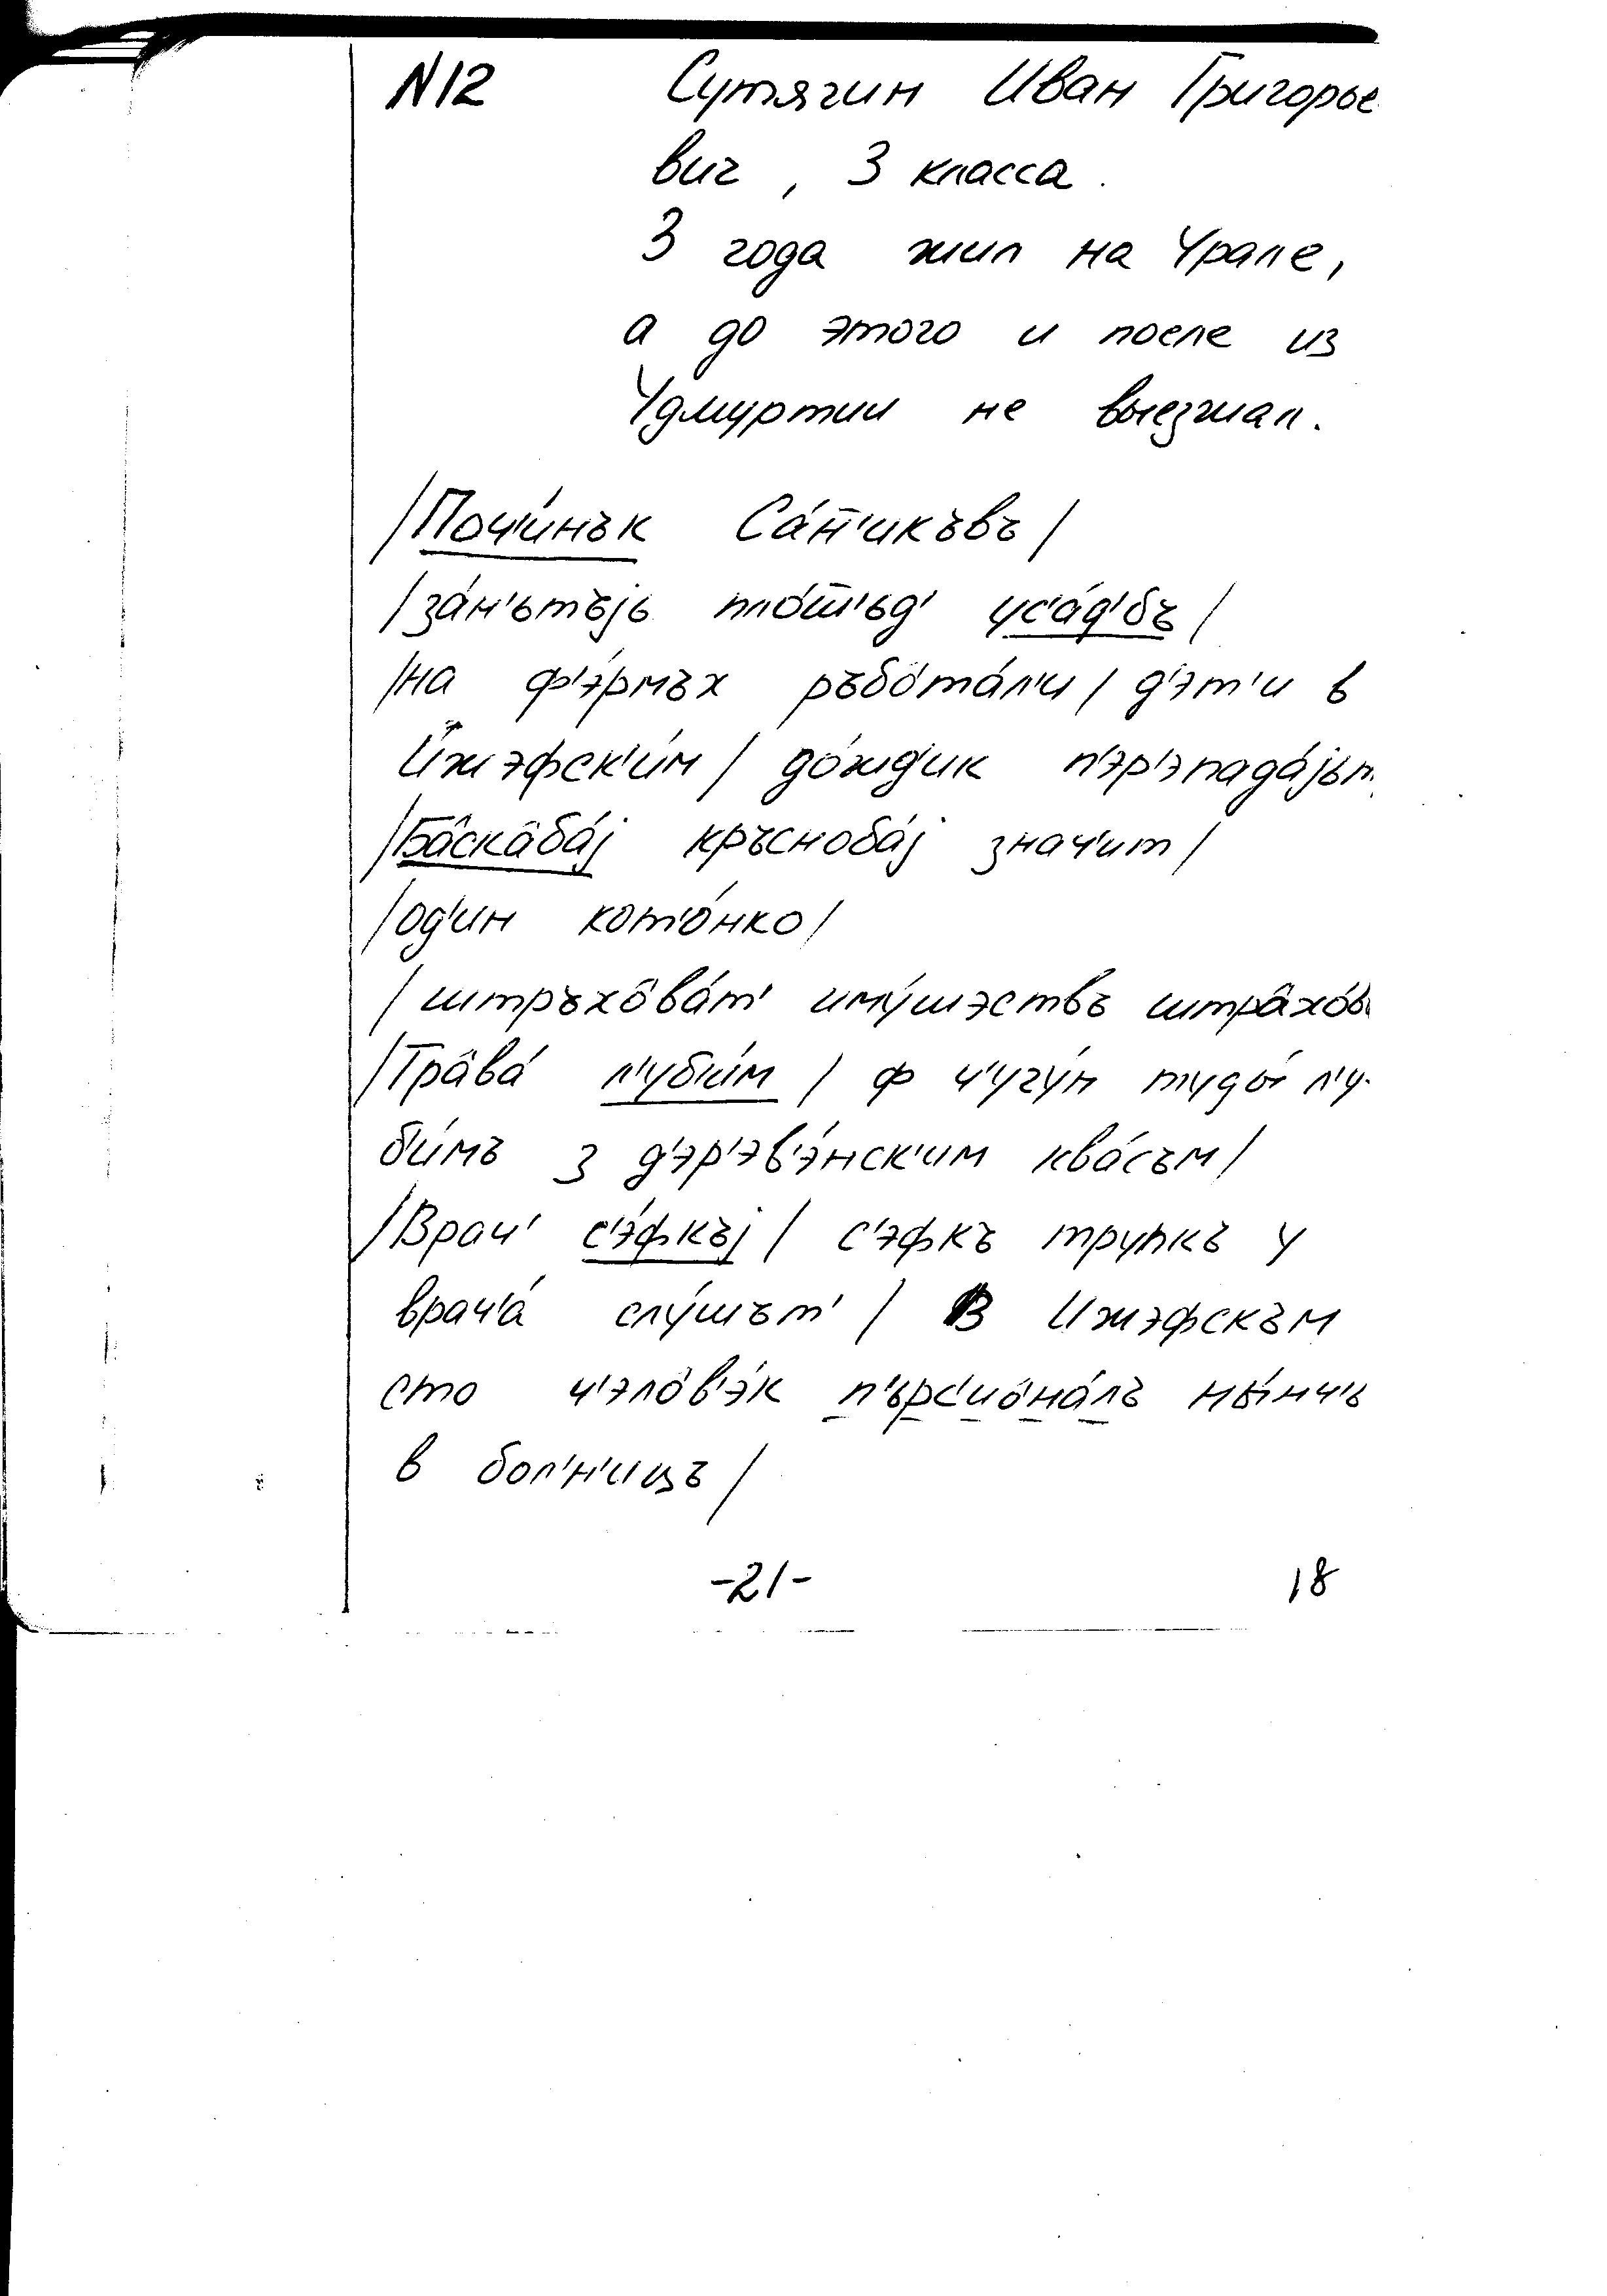 N12 Сутягин Иван Григорье
вич, 3 класса.
3 года жил на Урале,
а до этого и после из
Удмуртии не выезжал.
/Поч'и́нък Са́п̅'икъвъ/
/за́н'ьтъjь пло́ш̅'ьд' ус'а́д'бъ/
/на ф'э́рмъх ръбо̂та́л'и/ д'эт'и в
И́жэфск'и́м/ до́жд'ик п'эр'эпада́jьт
/Ба̂ска̂ба́j кръсноба́j знач'ит/
/од'ин кот'о́нко/
/штръхо̂ва́т' иму́шэствъ штра̂хо́в
/Тра̂ва́ л'уби́м/ ф ч'угу́н туды́ л'у-
би́мъ з д'эр'эв'э́нск'им ква́съм/
/Врач' с'э́фкъj/ с'эфкъ трупкъ у
врач'а́ слу́шът'/ В Ижэфскъм
сто ч'эло̂в'э́к п'ърс'ио̂на́лъ ны́нч'ь
в бол'н'ицъ/
-21- 18